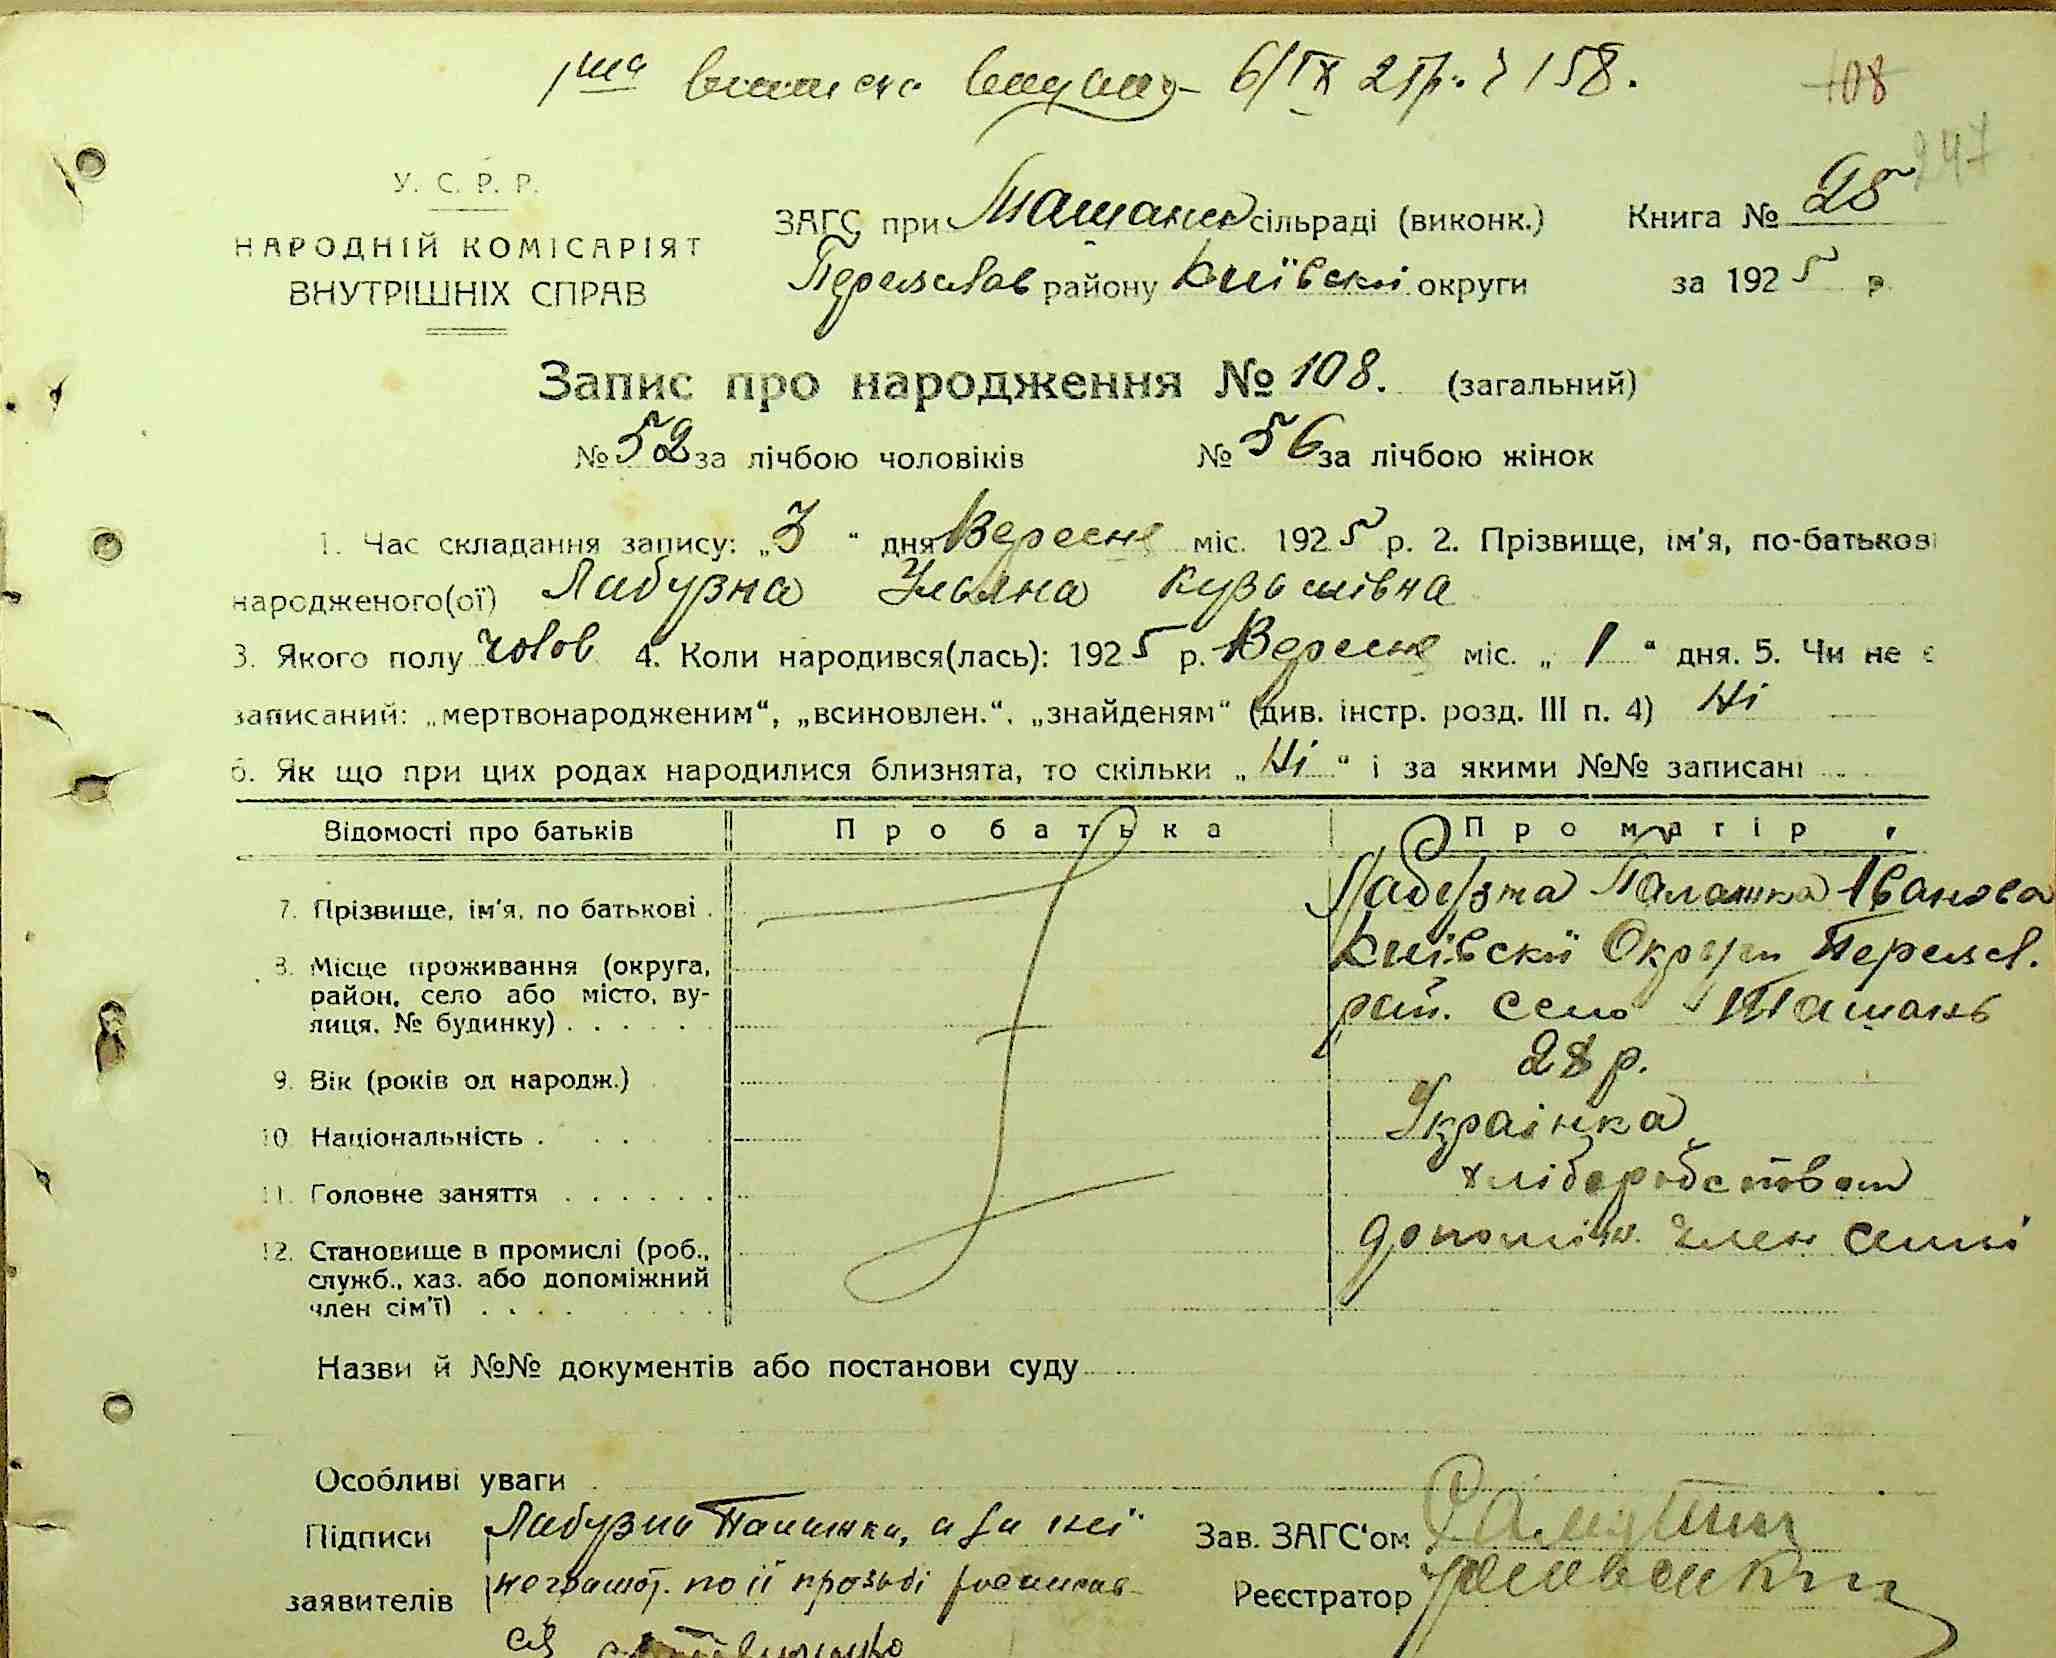 1ша виписка видана 6/IX 25р. № 158.
108
247
У. С. Р. Р.
НАРОДНІЙ КОМІСАРІЯТ
ВНУТРІШНІХ СПРАВ
ЗАГС при Ташанск сільраді (виконк.) Книга № 25
Переяслав району Київскої округи за 1925 р.
Запис про народження № 108. (загальний)
№ 52 за лічбою чоловіків № 56 за лічбою жінок
1. Час складання запису: „3“ дня Вересня міс. 1925 р. 2. Прізвище, ім'я, по-батькові
народженого(ої) Лабузна Уляна Кузьмівна
3. Якого полу чолов 4. Коли народився(лась): 1925 р. Вересня міс. „1“ дня. 5. Чи не є
записаний: „мертвонародженим“, „всиновлен.“, „знайденям“ (див. інстр. розд. III п. 4) Ні
6. Як що при цих родах народилися близнята, то скільки „Ні“ і за якими №№ записані
Відомості про батьків Про батька Про матір
7. Прізвище, ім'я, по батькові . Лабузна Палашка Іванова
8. Місце проживання (округа, Київскої Округи Переясл.
район, село або місто, ву-
лиця, № будинку) . . . . . . рай. село Ташань
9. Вік (років од народж.) 28 р.
10. Національність . . . . Українка
11. Головне заняття . . . . . . хліборобством
12. Становище в промислі (роб., допоміж. член сімї
служб., хаз. або допоміжний
член сім'ї) . . . .
Назви й №№ документів або постанови суду
Особливі уваги
Підписи Лабузна Палашка, а за неї Зав. ЗАГС'ом
заявителів неграмот. по її прозьбі росписав Реєстратор
ся